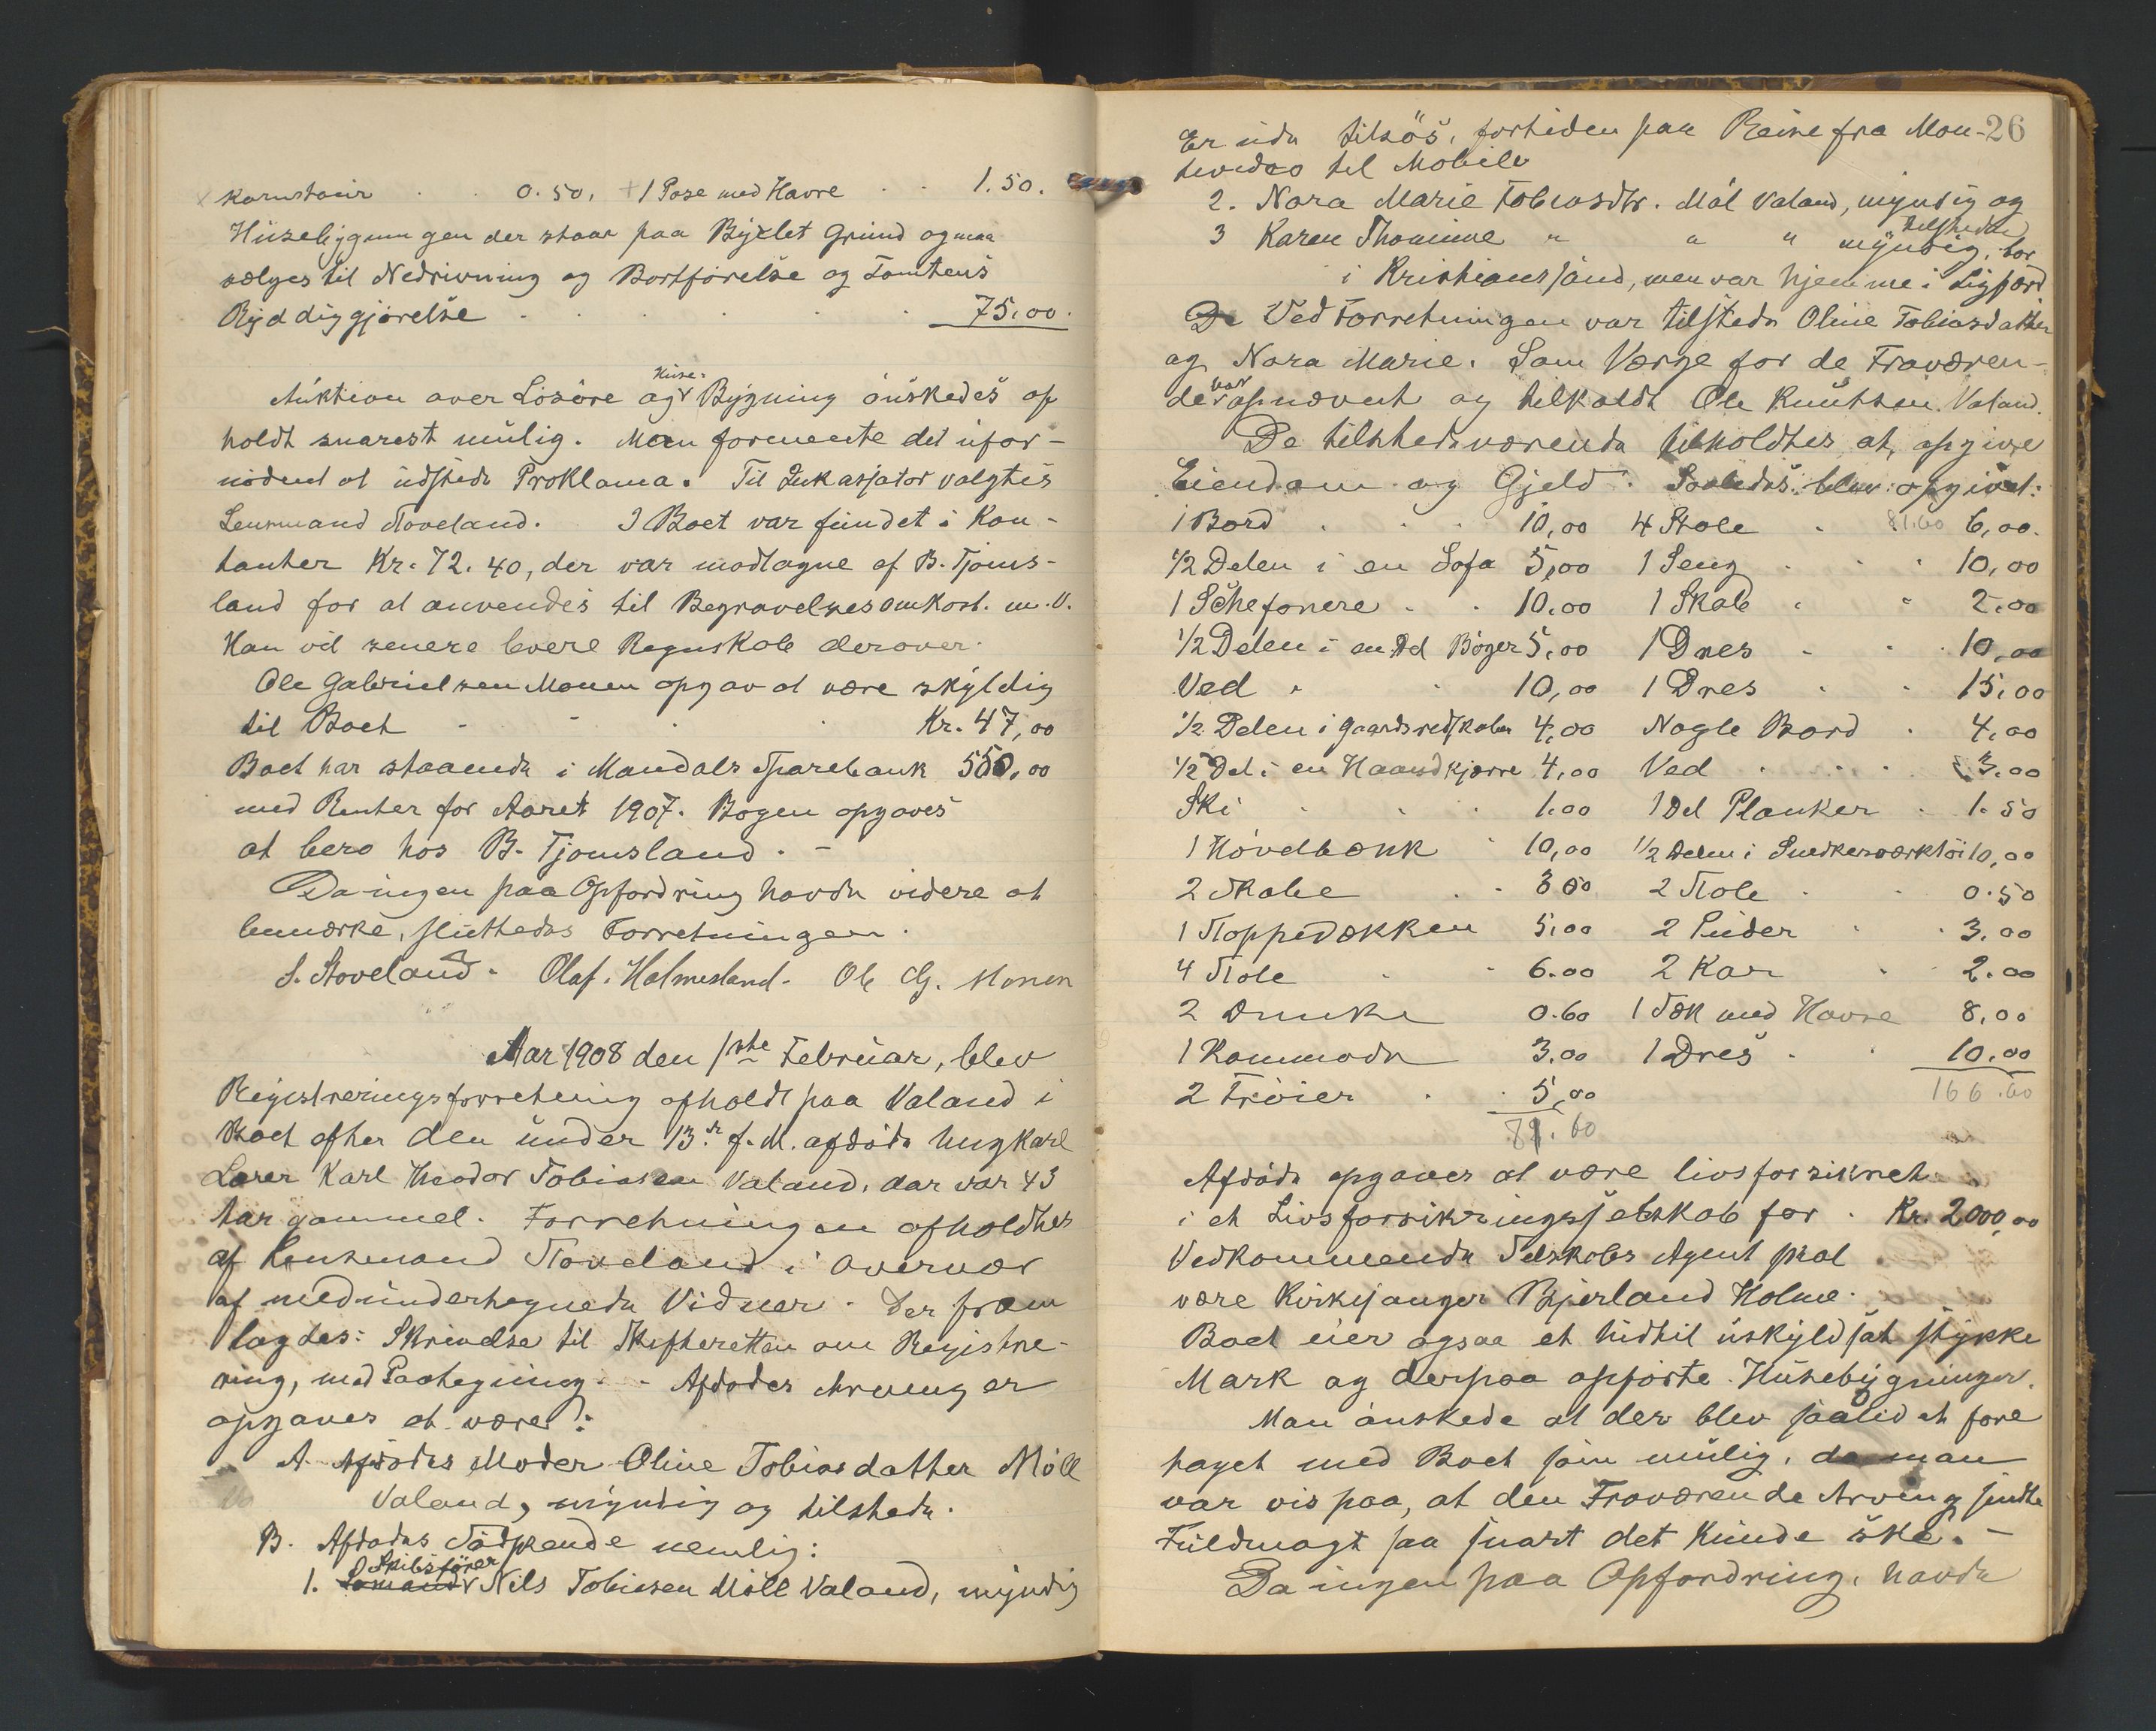 Kornstour . . 0.50, + 1 Pose med Havre . . 1.50.
Husebygningen der staar paa Byxlet Grund og maa
sælges til Nedrivning og Bortförelse og Tomtens
Ryddiggjörelse . . . . . 75,00.
Auktion over Lösöre og Huse- Bygning önskedes op
holdt snarest mulig. Man formeente det ufor-
nödent at udstede Proklama. Til Inkassator valgtes
Lensmand Stoveland. I Boet var fundet i Kon-
tanter Kr. 72.40, der var modtagne af B. Tjoms-
land for at anvendes til Begravelsesomkost. m.v.
Han vil senere levere Regnskab derover.
Ole Gabrielsen Monen opgav at være skyldig
til Boet . . . . Kr. 47,00
Boet har staaende i Mandals Sparebank 550,00
med Renter for Aaret 1907. Bogen opgaves
at bero hos B. Tjomsland. -
Da ingen paa Opfordring havde videre at
bemærke, sluttedes Forretningen.
S. Stoveland. Olaf. Holmesland. Ole G. Monen
Aar 1908 den 1ste Februar, blev
Registreringsforretning afholdt paa Valand i
Boet efter den under 13de f. M. afdöde Ungkarl
Lærer Karl Theodor Tobiasen Valand, der var 43
Aar gammel. Forretningen afholdtes
af Lensmand Stoveland i Overvær
af medundertegnede Vidner. Der frem
lagdes: Skrivelse til Skifteretten om Registre-
ring, med Paategning. - Afdödes Arvinger
opgaves at være:
A. Afdödes Moder Oline Tobiasdatter Möll
Valand, myndig og tilstede.
B. Afdödes Södskende nemlig:
1. Skibsförer Nils Tobiasen Möll Valand, myndig
26
Er ude tilsös, fortiden paa Reise fra Mon-
tevideo til Mobile
2. Nora Marie Tobiasdtr. Möl Valand, myndig og
tilstede
3 Karen Thomine " " " myndig, bor
i Kristianssand, men var hjemme i Ligfærd
Ved Forretningen var tilstede Oline Tobiasdatter
og Nora Marie. Som Værge for de Fraværen-
de var opnævnt og tilkaldt Ole Knutsen Valand.
De tilstedeværende tilholdtes at opgive
Eiendom og Gjeld. Saaledes blev opgivet:
1 Bord . . . 10,00 4 Stole . 81.60 6,00.
1/2 Delen i en Sofa 5,00 1 Seng . . . 10,00
1 Schefonere . . 10.00 1 Skab . . 2.00
1/2 Delen i en Del Böger 5,00 1 Dres . . . 10,00
Ved . . 10,00 1 Dres . . 15,00
1/2 Delen i Gaardsredskaber 4,00 Nogle Bord . 4,00
1/2 Del i en Haandkjærre 4,00 Ved . . . 3.00
Ski . . . 1.00 1 Del Planker . 1.50
1 Hövelbænk . 10,00 1/2 Delen i Snedkerværktöi 10,00
2 Skabe . . 3 00 2 Stole . . 0.50
1 Stoppedækken 5,00 2 Puder . . 3.00
4 Stole . . 6.00 2 Kar . 2.00
2 Dunke 0.60 1 Sæk med Havre 8,00
1 Kommode 3.00 1 Dres . . 10.00
2 Tröier . . 5,00 166.60
81.60
Afdöde opgaves at være livsforsikret
i et Livsforsikringsselskab for . Kr. 2000,00
Vedkommende Selskabs Agent skal
være Kirkesanger Bjerland Holme.
Boet eier ogsaa et hidtil uskyldsat stykke
Mark og derpaa opförte Husebygninger.
Man önskede at der blev saalidet fore
taget med Boet som mulig, da man
var vis paa, at den Fraværende Arving sendte
Fuldmagt saa snart det kunde ske. -
Da ingen paa Opfordring, havde